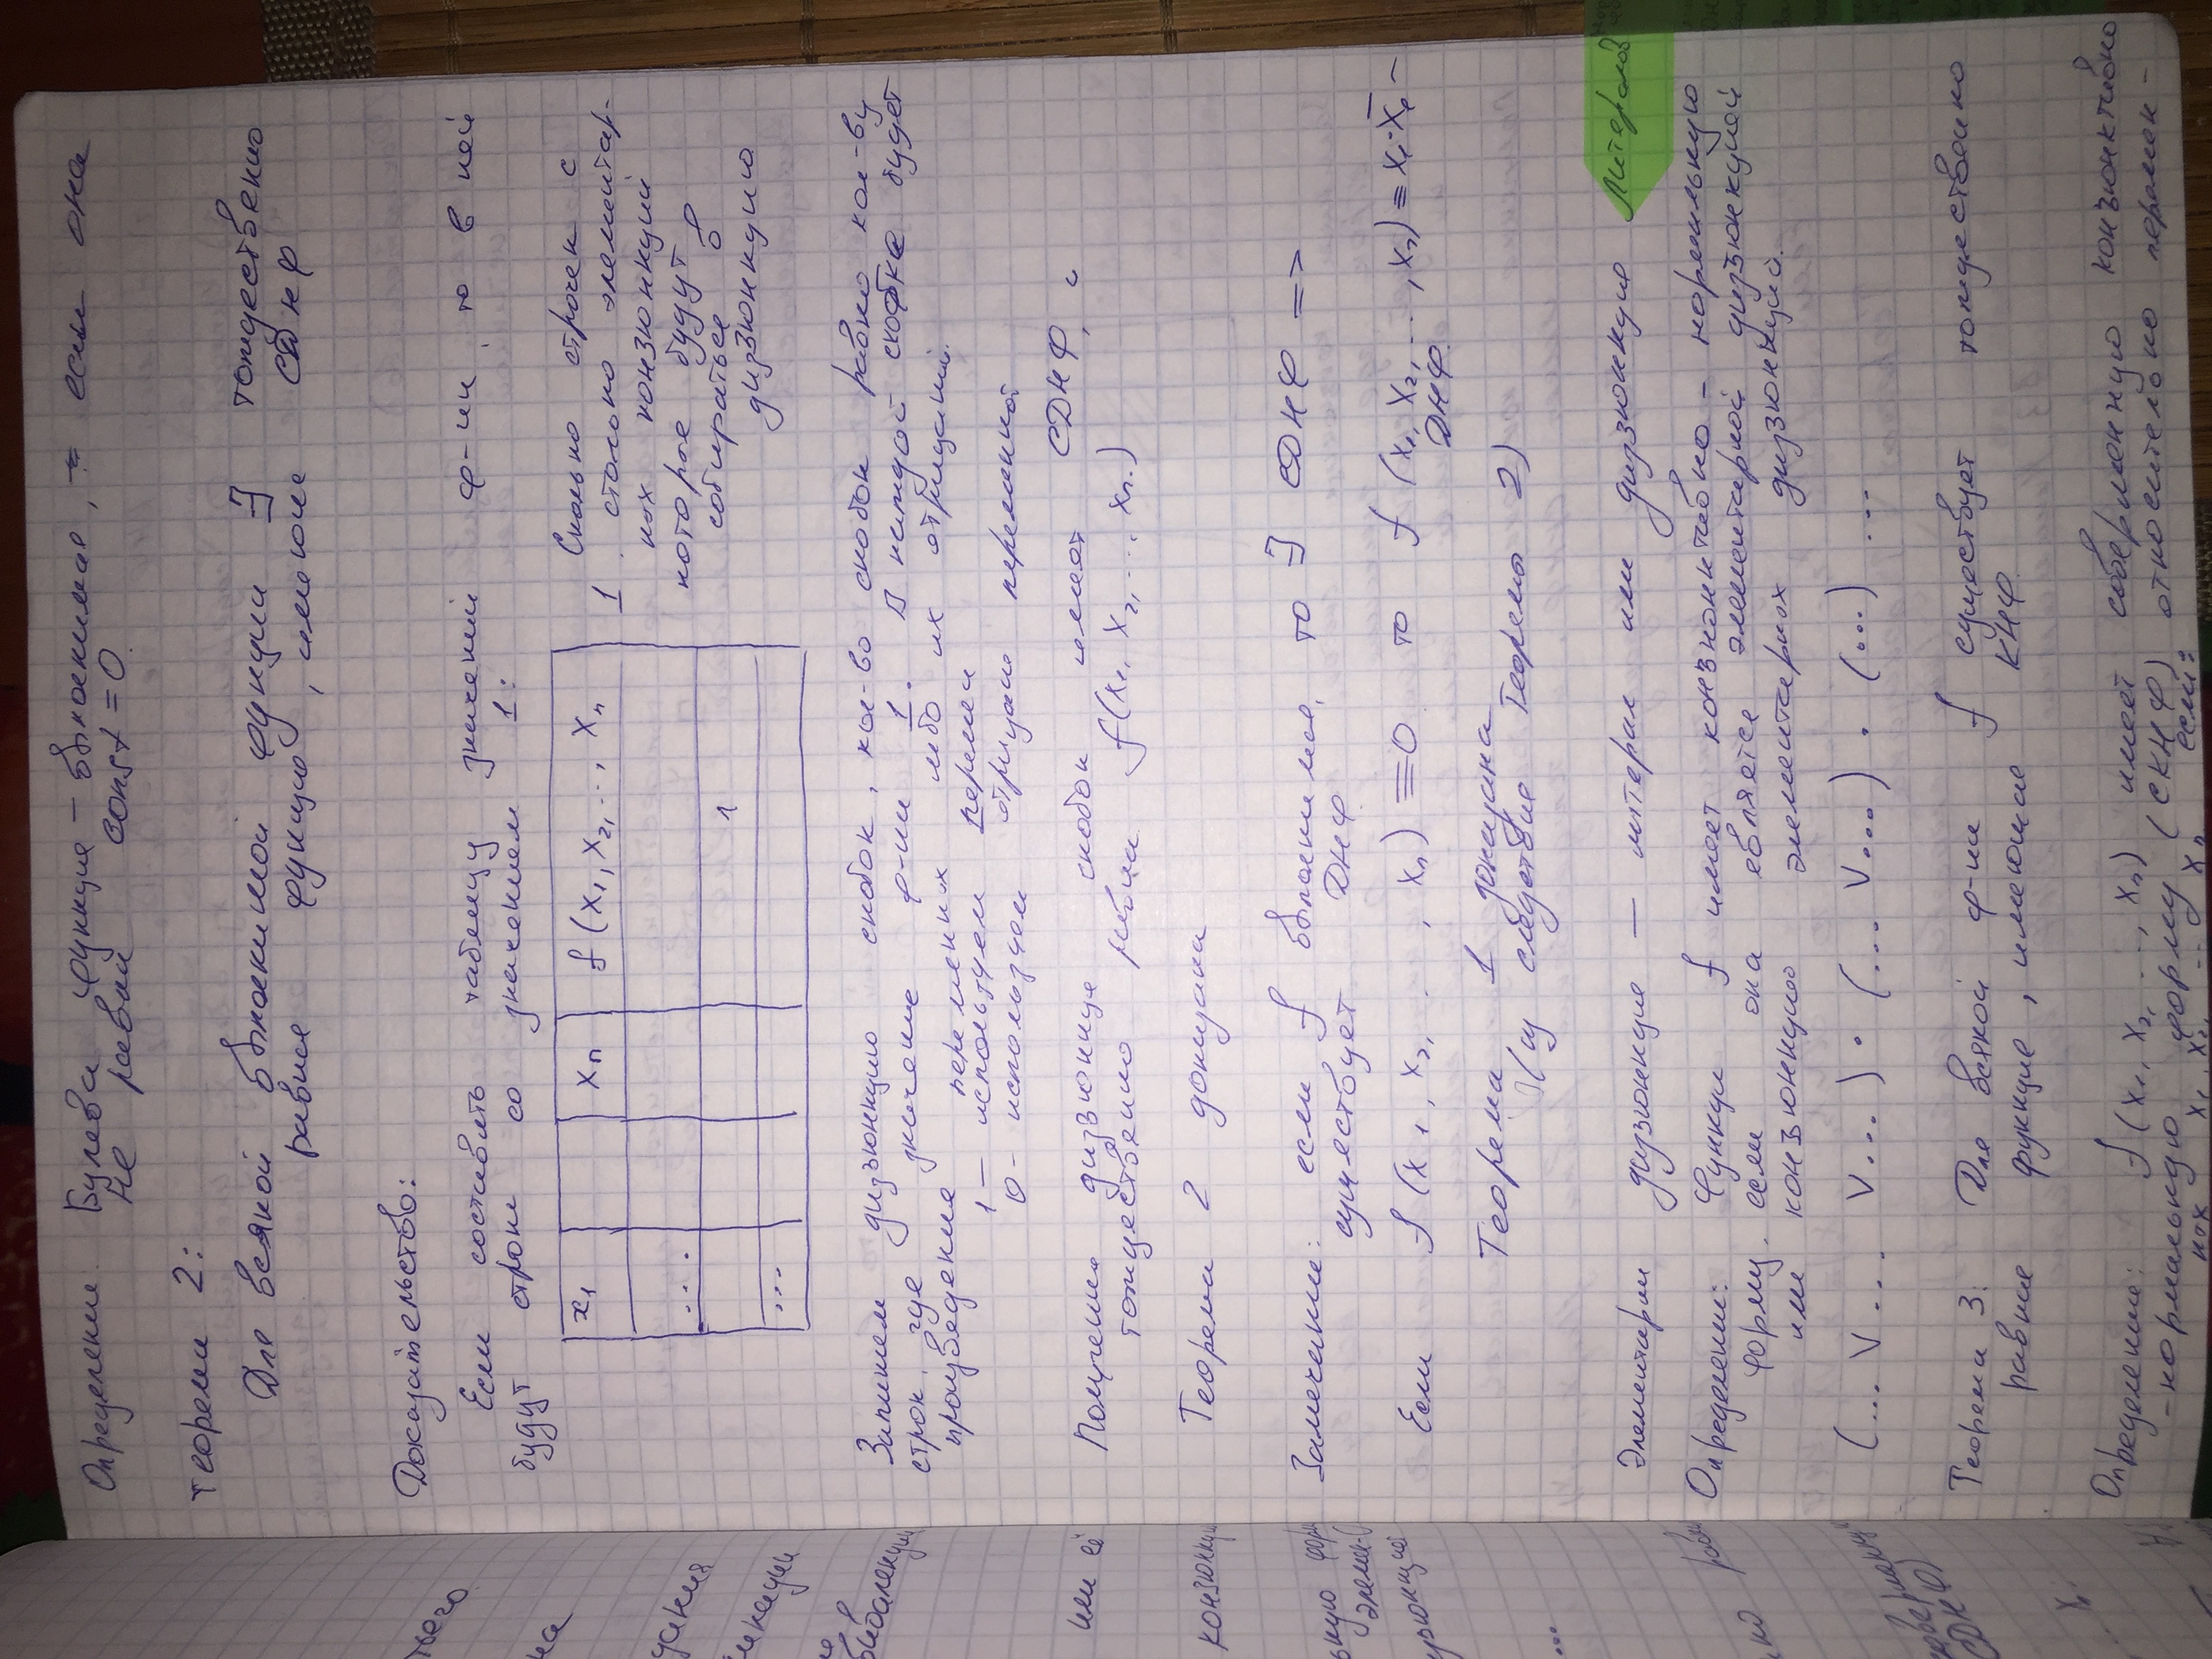 Определение. Булева функция - выполнимая, если она
не равна const = 0.
теорема 2:
Для всякой выполнимой фунции ∃ тождественно
равная функция, имеющая СДНФ
Доказательство:
Если составить таблицу значений ф-ии, то в ней
будут строки со значением 1:
x₁ xₙ f(x₁, x₂, ..., xₙ
...
1
...
Сколько строчек с
1, столько элементар-
ных конзюнкций
которые будут
собираться в
дизюнкцию
Запишем дизъюнкцию скобок, кол-во скобок равно кол-ву
строк, где значение ф-ии 1. В каждой скобке будет
произведение переменных либо их отрицаний.
1 - используем перемен
0 - используем отрицание переменной
Полученная дизъюнкция скобок имеет СДНФ, и
тождественно равна f(x₁, x₂, ..., xₙ.)
Теорема 2 доказана
Замечание: если f выполнимая, то ∃ СДНФ =>
существует ДНФ
Если f(x₁, x₂, ..., xₙ) ≡ 0 то f(x₁, x₂, ..., xₙ) ≡ x₁·x̄₁ -
ДНФ.
Теорема 1 доказана
(из следствие Теоремы 2)
Элементарная дизъюнкция - литерал или дизъюнкция литералов
Определение: Функция f имеет конъюнктивно - нормальную
форму, если она является элементарной дизъюнкцией
или конъюнкцию элементарных дизъюнкций.
(... V ... V ...) · (... V ...) · (...) ...
Теорема 3. Для всякой ф-ии f существует тождественно
равная функция, имеющая КНФ.
Определение: f(x₁, x₂, ..., xₙ) имеет совершенную конъюнктивно
-нормальную форму (СКНФ) относительно перемен-
ных x₁, x₂, ... xₙ если: